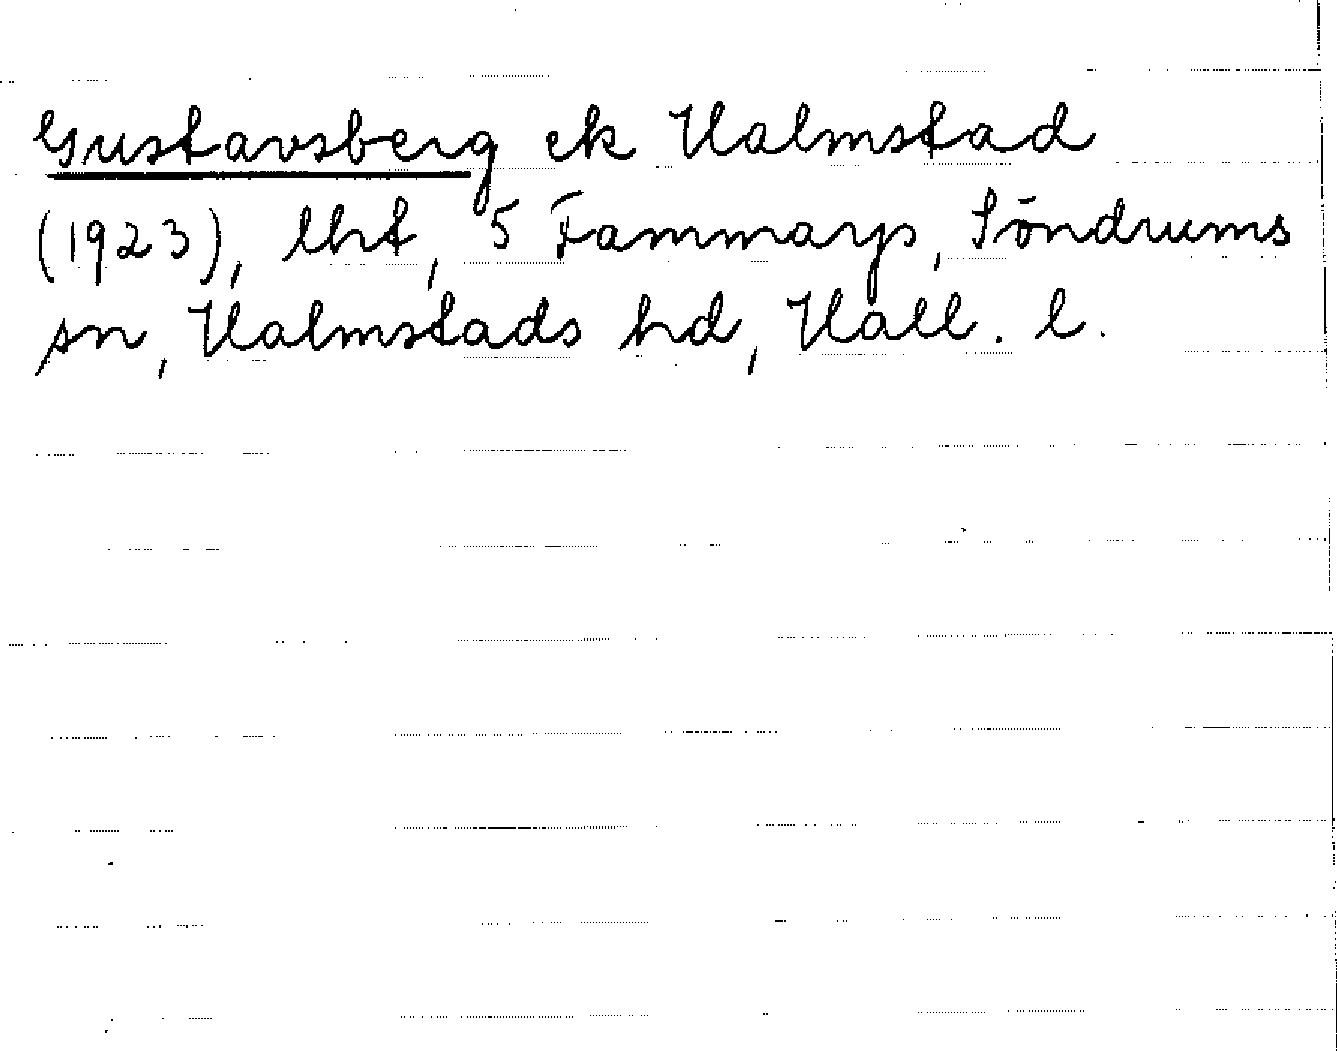 Gustavsberg ek Halmstad
(1923), lht, 5 Fammarp, Söndrums
sn, Halmstads hd, Hall. l.